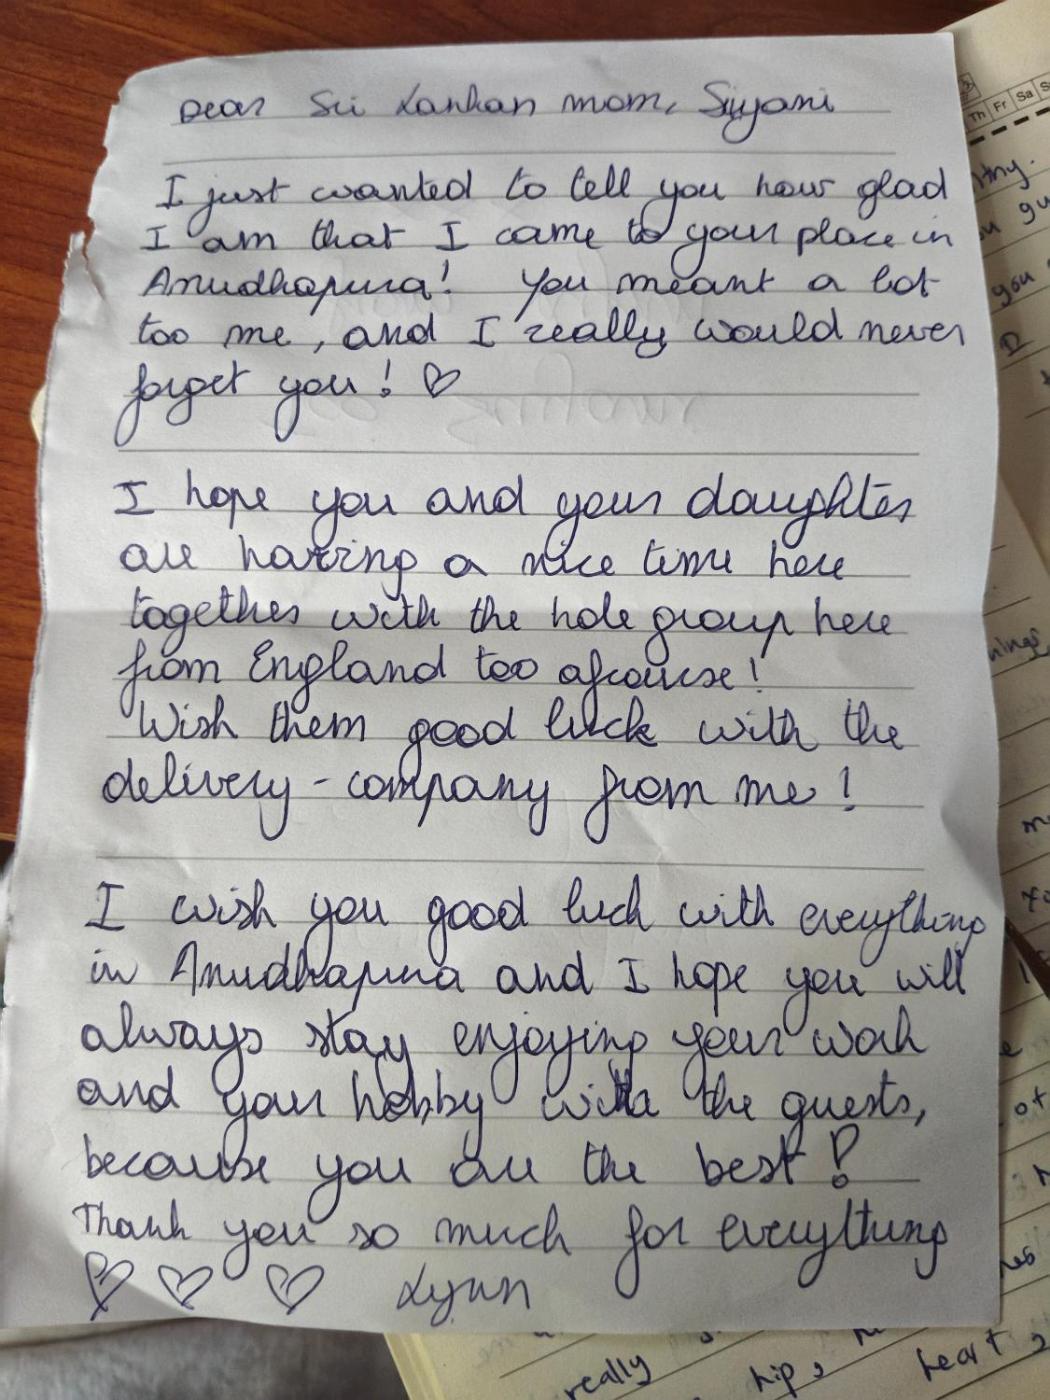 Dear Sri Lankan mom, Siyani
I just wanted to tell you how glad
I am that I came to your place in
Anudhapura! You meant a lot
too me, and I really would never
forget you! ♡
I hope you and your daughter
are having a nice time here
together with the hole group here
from England too afcourse!
Wish them good luck with the
delivery-company from me!
I wish you good luck with everything
in Anudhapura and I hope you will
always stay enjoying your work
and your hobby with the guests,
because you are the best!
Thank you so much for everything
♡ ♡ ♡ Lynn
Th Fr Sa
you
really
hip,
heart,